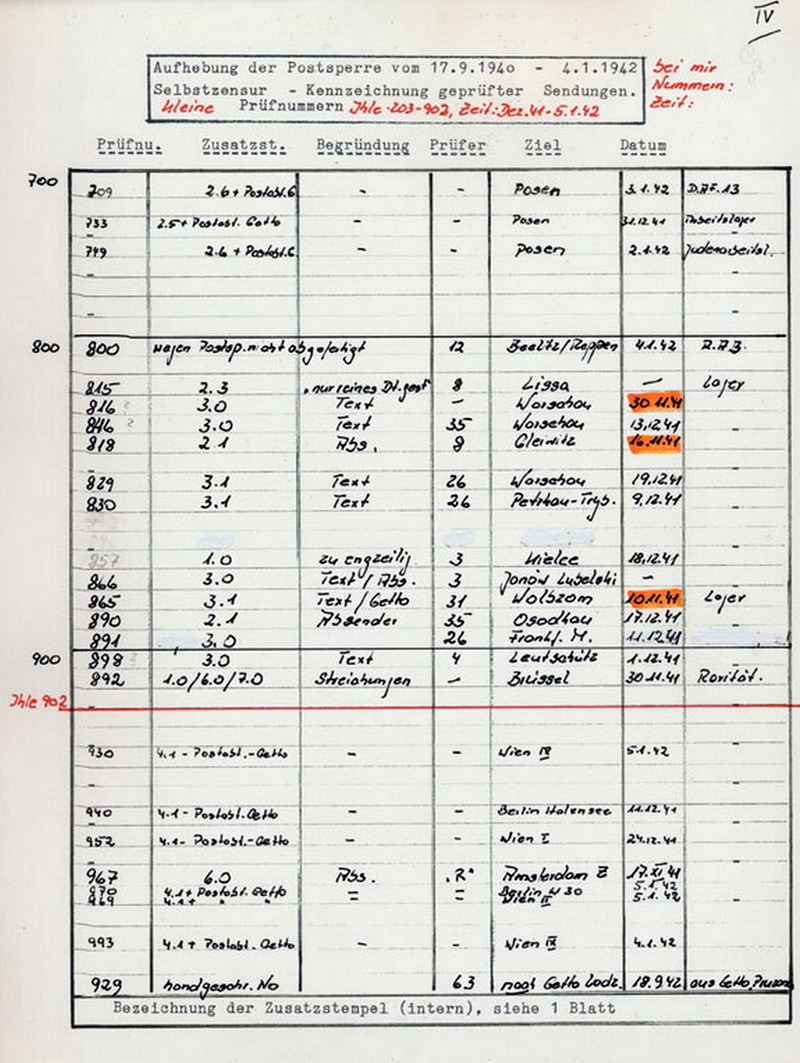 IV
Aufhebung der Postsperre vom 17.9.1940 - 4.1.1942
Selbstzensur - Kennzeichnung geprüfter Sendungen.
kleine Prüfnummern Ihle 203-902, Zeit: Dez. 41-5.1.42
bei mir
Nummern:
Zeit:
Prüfnu. Zusatzst. Begründung Prüfer Ziel Datum
700
709 2.6 + Postabt. G - - Posen 3.1.42 D.A.F. 13
733 2.5 + Postabt. Getto - - Posen 31.12.41
749 2.6 + Postabt. G - - Posen 2.1.42
800 800 wegen Postsp. nicht abgefertigt 12 Beelitz/Reppen 4.1.42 R.A.B.
815 2.3 "nur reines Dt. gest" 8 Lissa - Lager
816 ? 3.0 Text - Warschau 30.11.41
846 ? 3.0 Text 35 Warschau 13.12.41
818 2.1 Abs. 8 Gleiwitz 16.11.41
829 3.1 Text 26 Warschau 19.12.41
830 3.1 Text 26 Petrkau-Tryb. 9.12.41
857 1.0 zu engzeilig 3 Kielce 18.12.41
866 3.0 Text / Abs. 3 Janów Lubelski -
865 3.1 Text / Getto 31 10.11.41 Lager
890 2.1 Absender 35 17.12.41
891 3.0 26 Frankf. M. 11.12.41
900 898 ? 3.0 Text 4 Leutschütz 1.12.41
892 1.0/6.0/7.0 Streichungen - Brüssel 30.11.41 Rarität.
Ihle 902
930 4.1 - Postabt.-Getto - - Wien IV 5.1.42
940 4.1 - Postabt. Getto - - Berlin Halensee 11.12.41
952 4.1 - Postabt.-Getto - - Wien I 24.12.41
967 6.0 Abs. "R" Amsterdam Z 17.XI.41
970 4.1 + Postabt. Getto - - Berlin W 30 5.1.42
969 4.1 + " " - - Wien II 5.1.42
993 4.1 + Postabt. Getto - - Wien IX 4.1.42
929 handgeschr. No 63 nach Getto Lodz. 18.9.42 aus Getto
Bezeichnung der Zusatzstempel (intern), siehe 1 Blatt